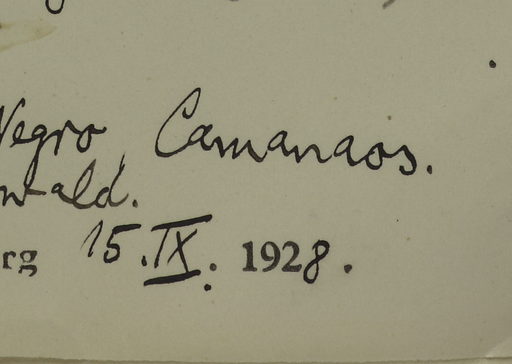 Negro, Camanaos.
wald.
rg 15.IX. 1928.